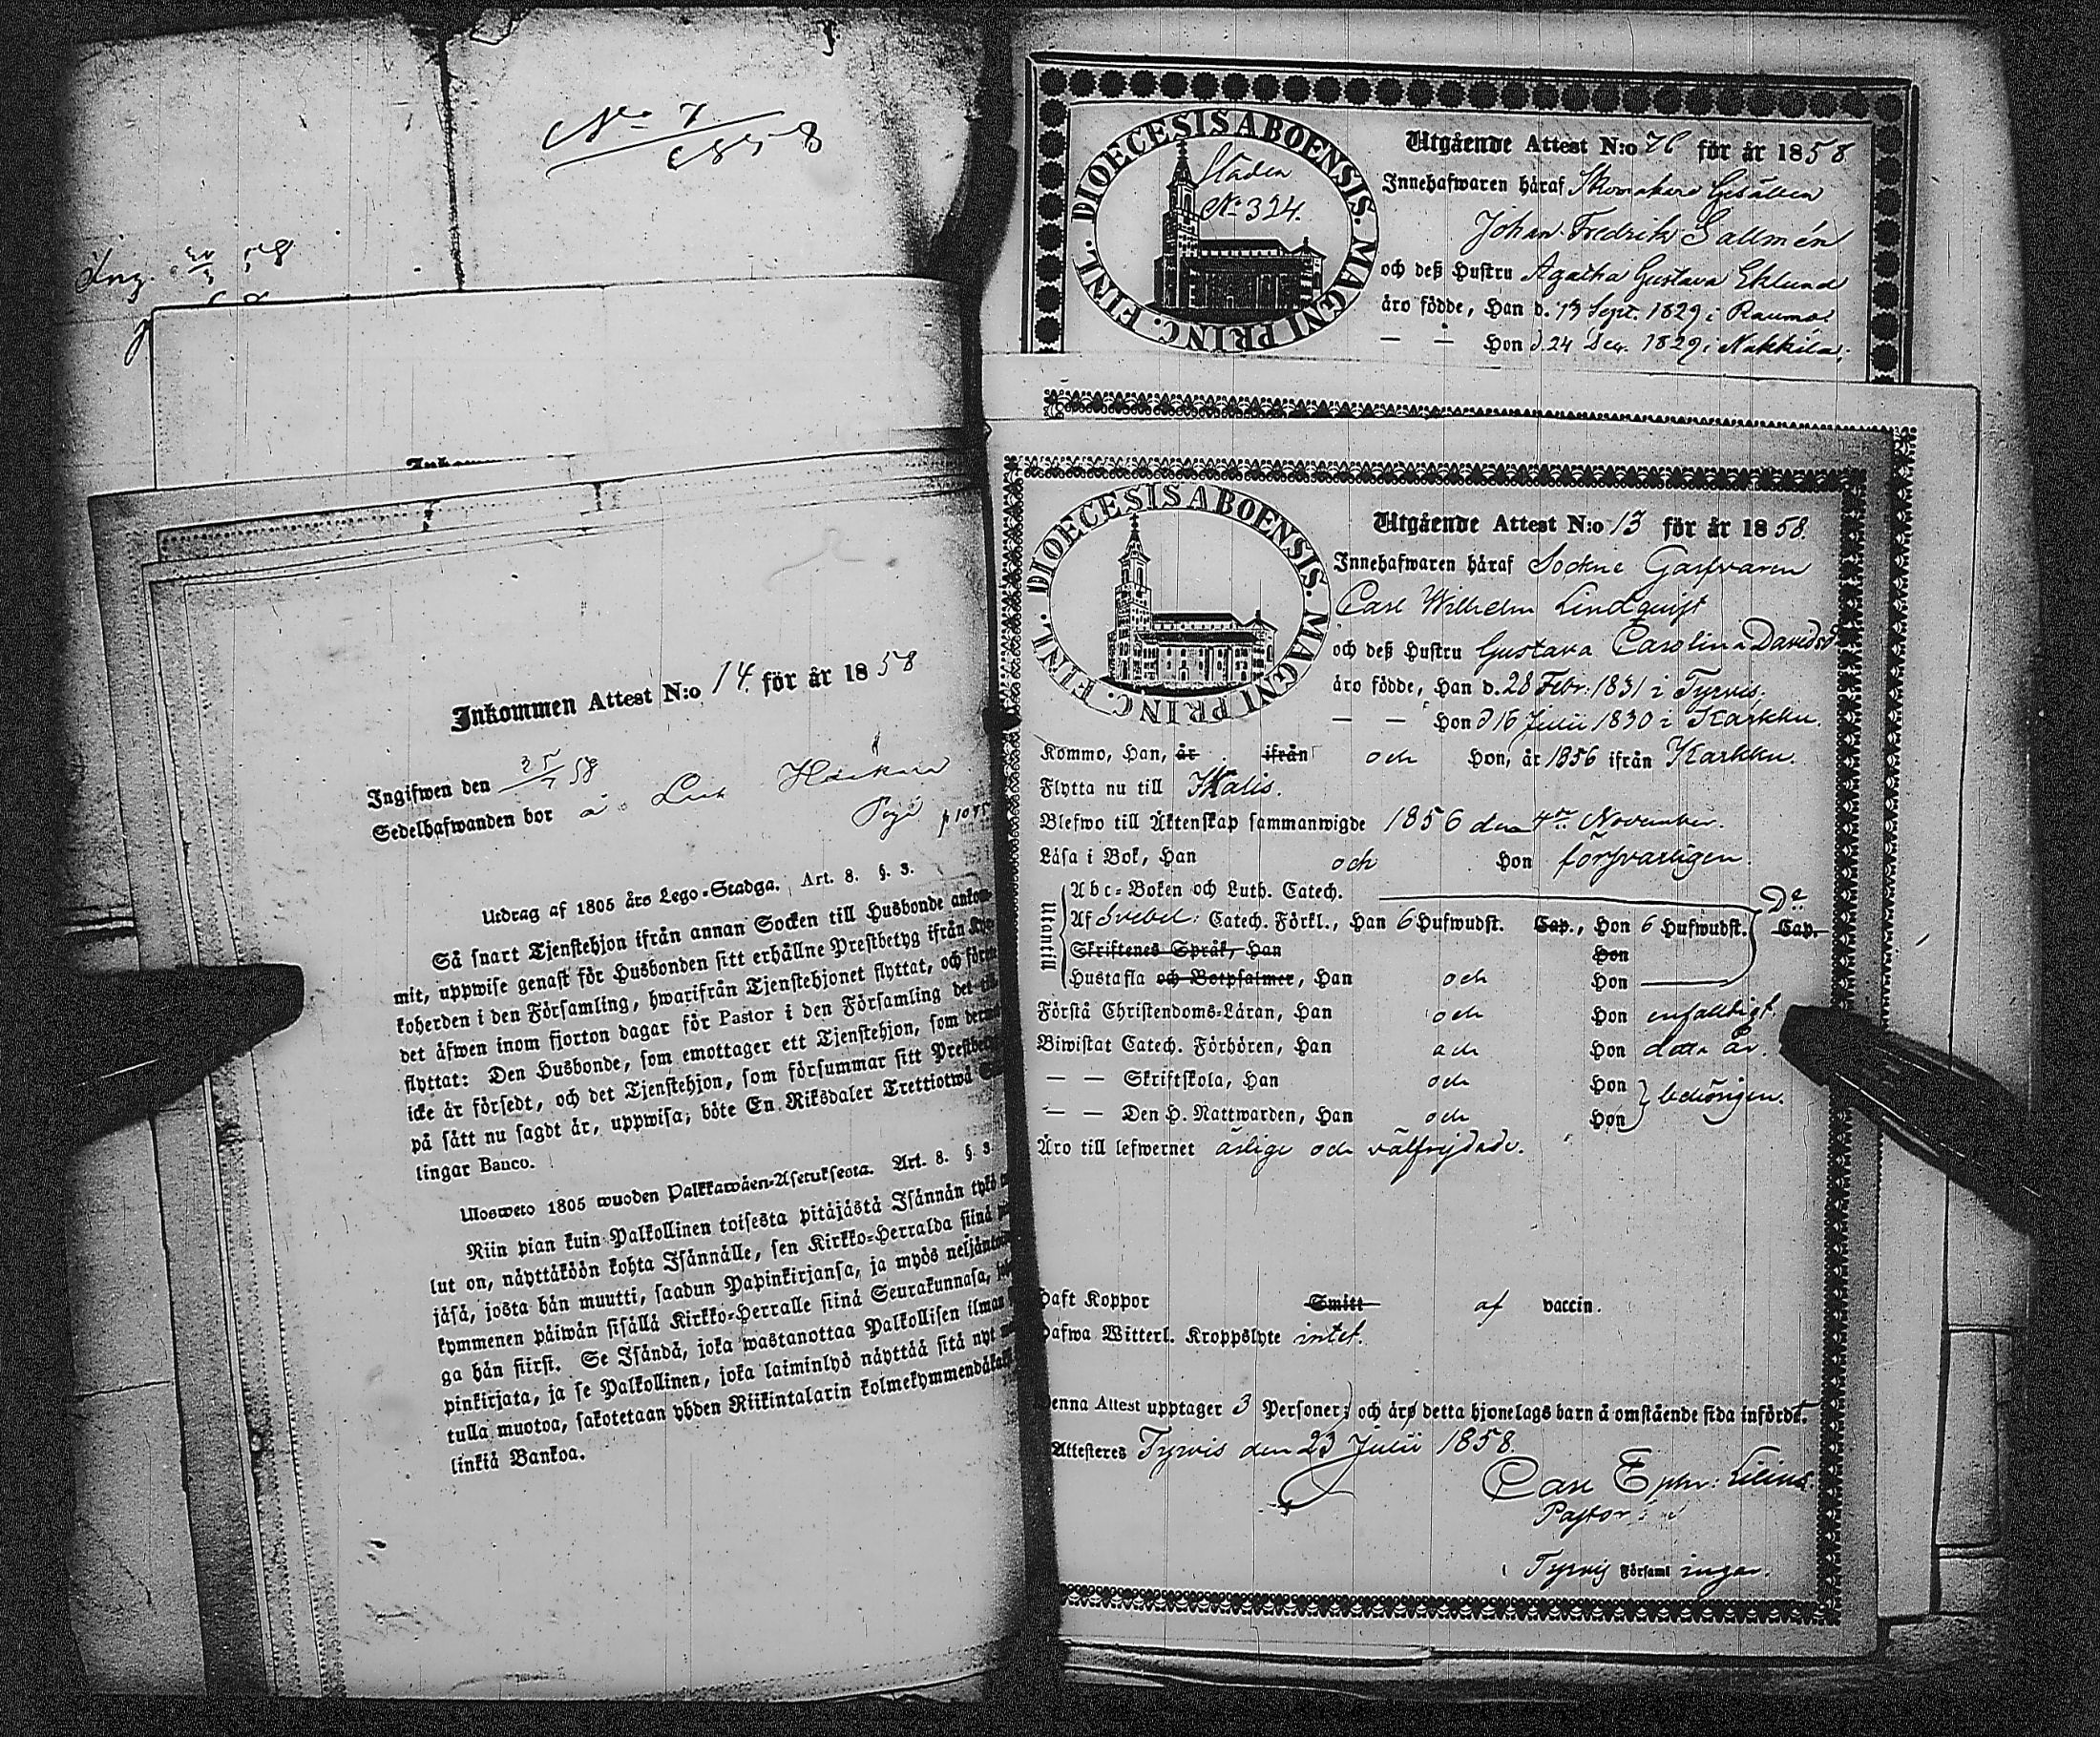 No 7
1858
Ing. 30/3 58
Inkommen Attest N:o 14. för år 1858
Ingifwen den 25/7 58
Sedelhafwanden bor å
p 1075
Utdrag af 1805 års Lego-Stadga. Art. 8. §. 3.
Så snart Tjenstehjon ifrån annan Socken till Husbonde
mit, uppwise genast för Husbonden sitt erhållne Prestbetyg ifrån
koherden i den Församling, hwarifrån Tjenstehjonet flyttat, och
det äfwen inom fjorton dagar för Pastor i den Församling det
flyttat: Den Husbonde, som emottager ett Tjenstehjon, som
icke är försedt, och det Tjenstehjon, som försummar sitt
på sätt nu sagdt är, uppwisa; böte En Riksdaler Trettiotwå
lingar Banco.
Ulosweto 1805 wuoden Palkkawäen-Asetuksesta. Art. 8. §. 3
Niin pian kuin Palkollinen toisesta pitäjästä Isännän tykö
lut on, näyttäköön kohta Isännälle, sen Kirkko-Herralda siinä
jäsä, josta hän muutti, saadun Papinkirjansa, ja myös
kymmenen päiwän sisällä Kirkko-Herralle siinä Seurakunnasa,
ga hän siirsi. Se Isändä, joka wastanottaa Palkollisen ilman
pinkirjata, ja se Palkollinen, joka laiminlyö näyttää sitä nyt
tulla muotoa, sakotetaan yhden Riikintalarin
linkiä Bankoa.
DIOECESIS ABOENSIS. MAGNI PRINC. FINL.
Staden
No 324.
Utgående Attest N:o 76 för år 1858
Innehafwaren häraf Skomakare Gesällen
Johan Fredrik Sallmén
och deß Hustru Agatha Gustava Eklund
äro födde, Han d. 13 Sept. 1829 i Raumo:
— — Hon d. 24 Dec. 1829 i Nakkila;
DIOECESIS ABOENSIS. MAGNI PRINC. FINL.
Utgående Attest N:o 13 för år 1858.
Innehafwaren häraf Sockne Garfvaren
Carl Wilhelm Lindquist
och deß Hustru Gustava Carolina Davidsd
äro födde, Han d. 28 Febr. 1831 i Tyrvis.
— — Hon d 16 Julii 1830 i Karkku.
Kommo, Han, år ifrån och Hon, år 1856 ifrån Karkku.
Flytta nu till Ikalis.
Blefwo till Äktenskap sammanwigde 1856 den 4de November.
Läsa i Bok, Han och Hon försvarligen.
Utantill
Abc-Boken och Luth. Catech.
Af Svebel: Catech. Förkl., Han 6 Hufwudst. Cap., Hon 6 Hufwudst. Cap.
Do
Skriftenes Språk, Han Hon
Hustafla och Botpsalmer, Han och Hon
Förstå Christendoms-Läran, Han och Hon enfaldigt.
Biwistat Catech. Förhören, Han och Hon detta år.
— — Skriftskola, Han och Hon
behörigen.
— — Den H. Nattwarden, Han och Hon
Äro till lefwernet ärlige och välfrejdade.
Haft Koppor Smitt af vaccin.
Hafwa Witterl. Kroppslyte intet.
Denna Attest upptager 3 Personer; och äro detta hjonelags barn å omstående sida införde.
Attesteres Tyrvis den 23 Julii 1858.
Carl Ephr: Lilius.
Pastor
i Tyrvis Församlingar.